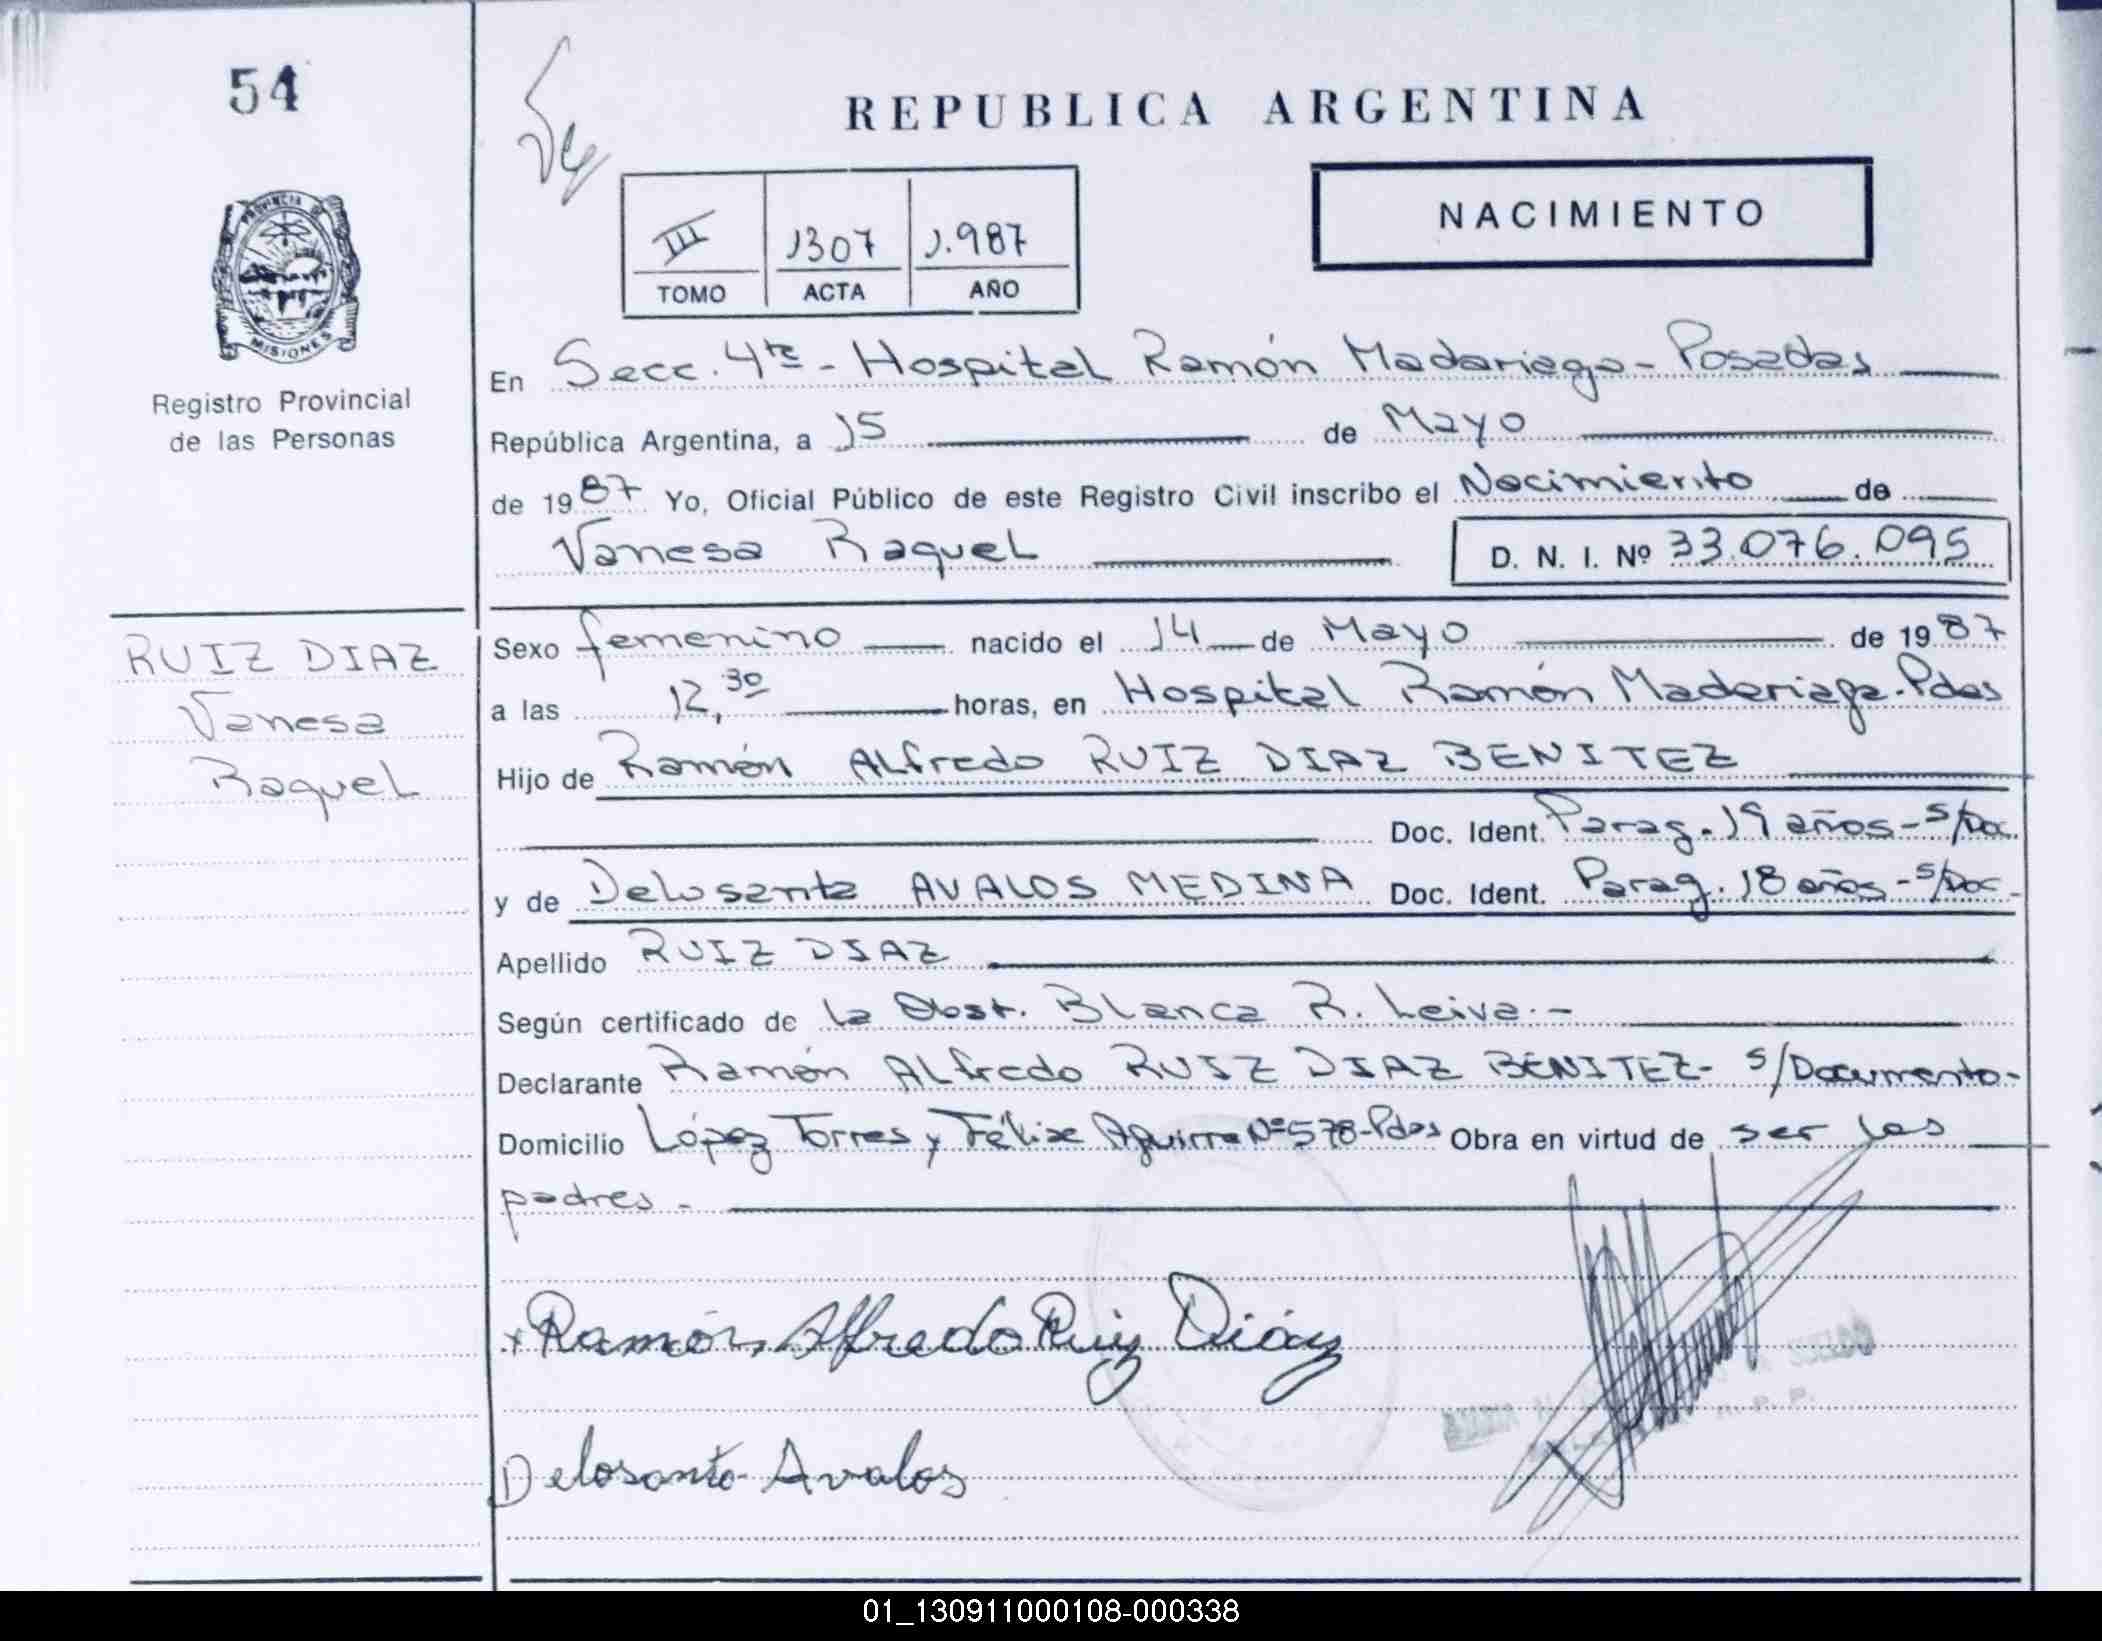 54
REPUBLICA ARGENTINA
NACIMIENTO
III 1307 1.987
TOMO ACTA AÑO
PROVINCIA DE
MISIONES
Registro Provincial
de las Personas
En Secc. 4ta - Hospital Ramón Madariaga - Posadas
República Argentina, a 15 de Mayo
de 1987 Yo, Oficial Público de este Registro Civil inscribo el Nacimiento de
Vanesa Raquel D. N. I. Nº 33.076.095
RUIZ DIAZ
Vanesa
Raquel
Sexo femenino nacido el 14 de Mayo de 1987
a las 12,30 horas, en Hospital Ramón Madariaga - Pdas
Hijo de Ramón Alfredo RUIZ DIAZ BENITEZ
Doc. Ident. Parag. 19 años - s/Doc.
y de Delosanta AVALOS MEDINA Doc. Ident. Parag. 18 años - s/Doc -
Apellido RUIZ DIAZ
Según certificado de la Obst. Blanca R. Leiva.-
Declarante Ramón Alfredo RUIZ DIAZ BENITEZ - s/Documento -
Domicilio López Torres y Félix Aguirre Nº 578 - Pdas Obra en virtud de ser los
padres -
x Ramón Alfredo Ruiz Diáz
Delosanto Avalos
01_130911000108-000338